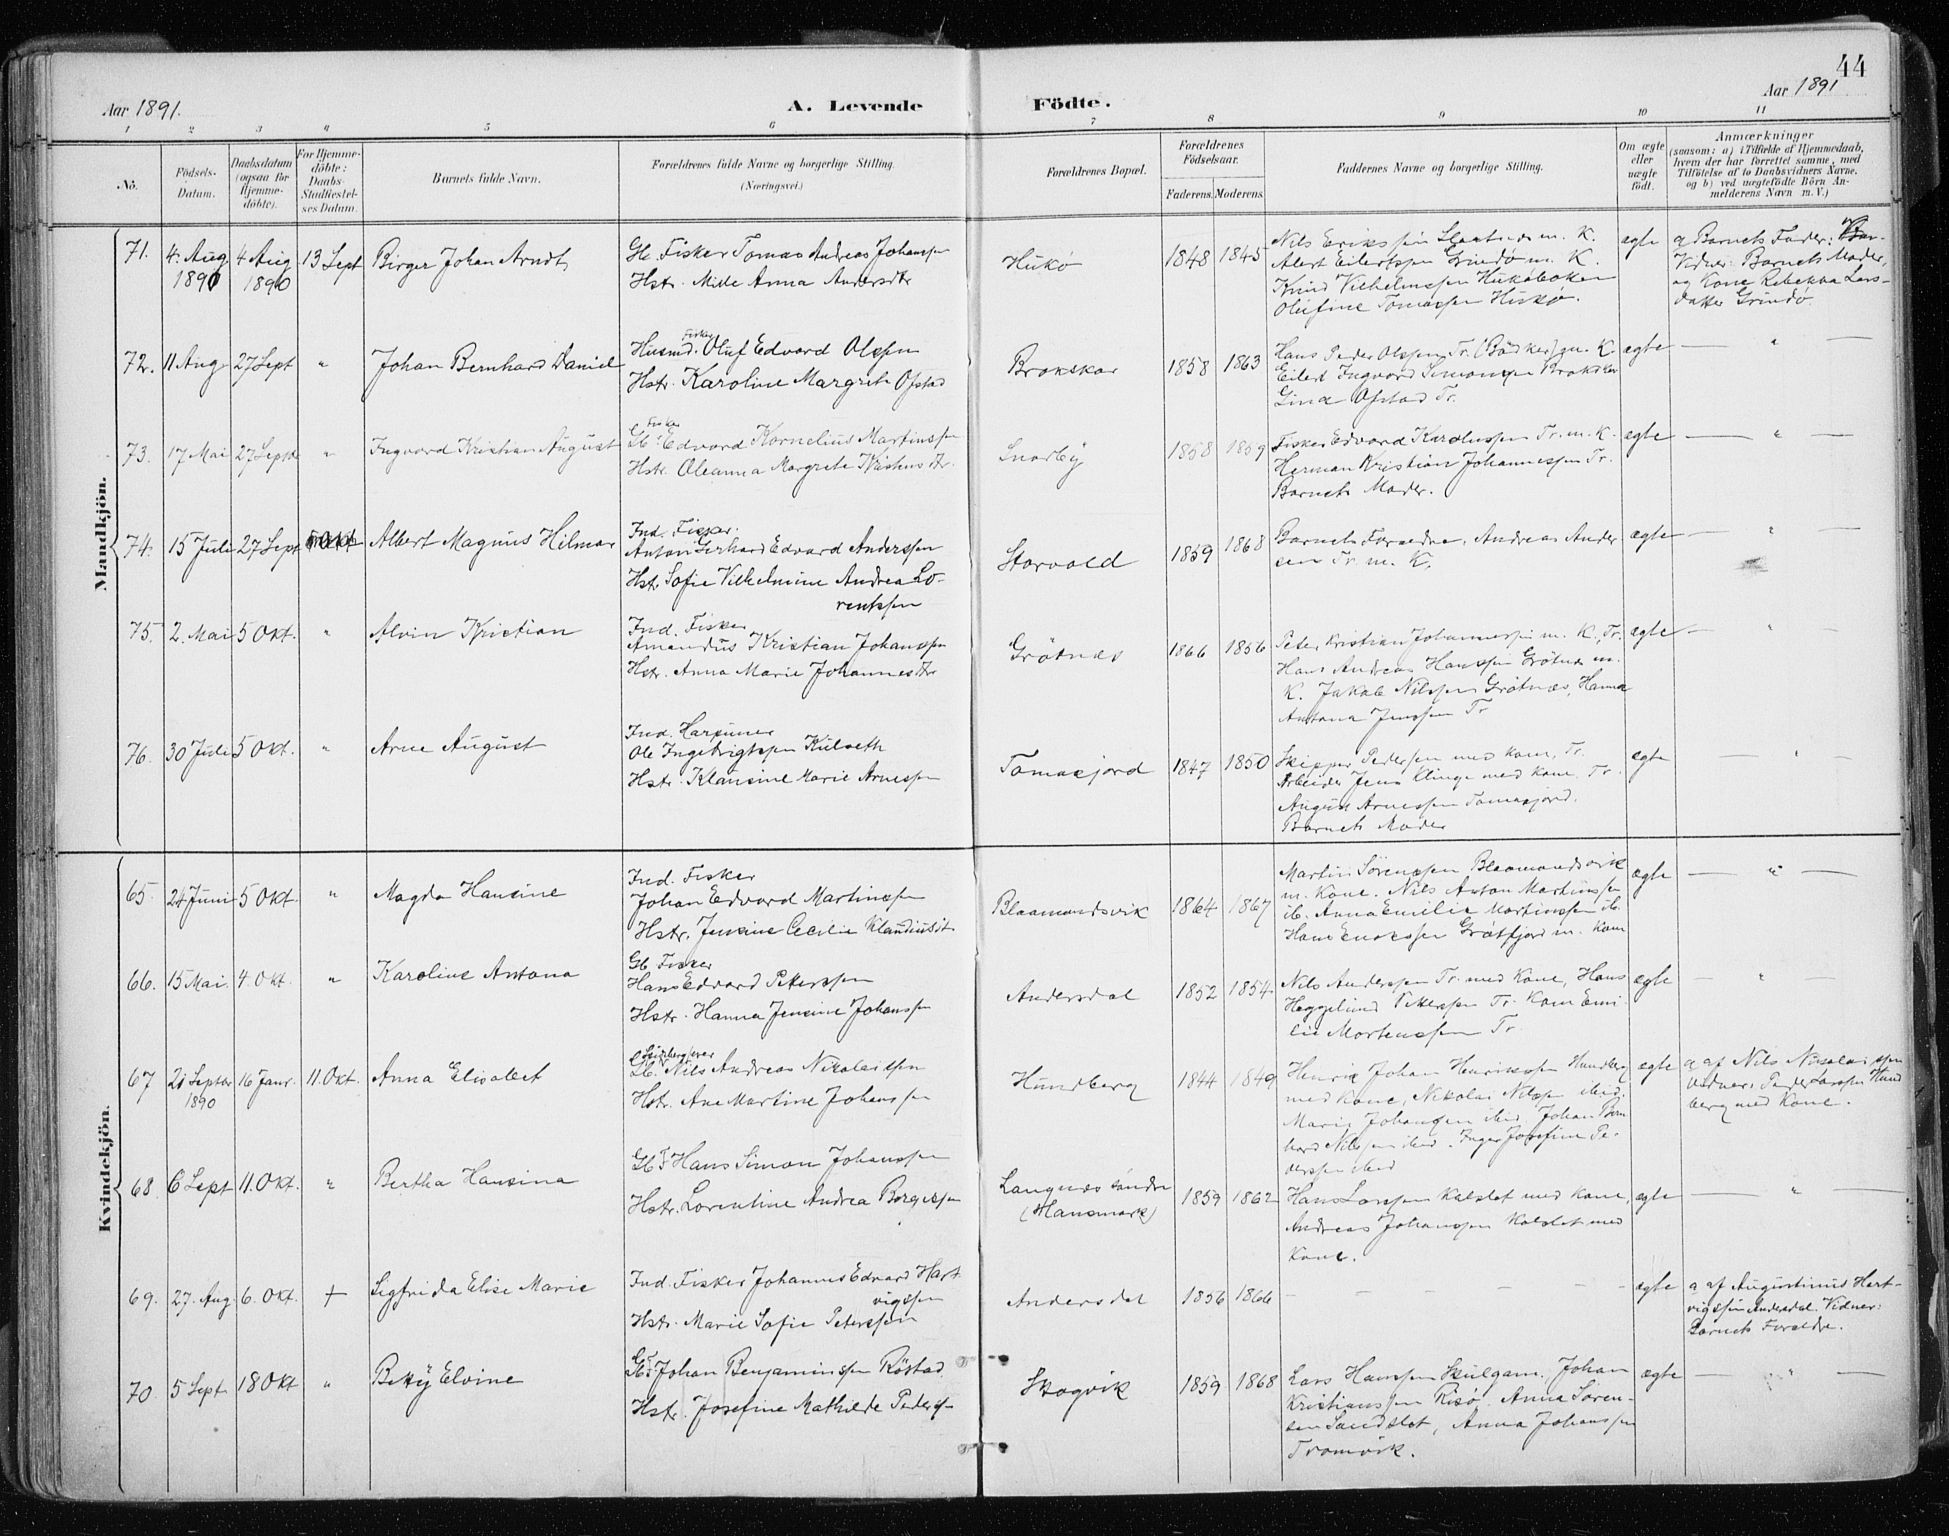 44
Aar 1891.
A. Levende Födte.
Aar 1891
1 2 3 4 5 6 7 8 9 10 11
No.
Födsels-Datum.
Daabsdatum (ogsaa for Hjemme-döbte).
For Hjemme-döbte: Daabs-Stadfæstel-ses Datum.
Barnets fulde Navn.
Forældrenes fulde Navne og borgerlige Stilling. (Næringsvei.)
Forældrenes Bopæl.
Forældrenes Födselsaar.
Faderens. Moderens.
Faddernes Navne og borgerlige Stilling.
Om ægte eller uægte födt.
Anmærkninger
(saasom: a) i Tilfælde af Hjemmedaab, hvem der har forrettet samme, med Tilföielse af to Daabsvidners Navne, og b) ved uægtefödte Börn An-melderens Navn m.V.)
Mandkjön.
71. 4. Aug 1890 4 Aug 1890 13 Sept Birger Johan Arndt
Gb. Fisker Tomas Andreas Johanssen
Hstr. Milde Anna Andersdtr
Hukö 1848 1845
Nils Erikssen m. K.
Albert Eilertssen Grindö m. K.
Knud Vilhelmssen Hukö
Olufine Tomassen Hukö.
ægte
a Barnets Fader:
Vidner: Barnets Moder,
og Kone Rebekka Lars-
datter Grindö
72. 11 Aug 27 Sept " Johan Bernhard Daniel
Fisker
Husmd. Oluf Edvard Olssen
Hstr. Karoline Margrete Ofstad
Brokskar 1858 1863
Hans Peder Olssen Tr. (Bödker) m. K
Eilert Ingvard Simonssen Brokskar
Gina Ofstad Tr.
ægte — " —
73. 17 Mai 27 Septb " Ingvard Kristian August
Fisker
Gb. Edvard Kornelius Martinssen
Hstr. Oleanna Margrete Kristensdtr.
Snarby 1858 1859
Fisker Edvard Karolussen Tr. m. K.
Herman Kristian Johannessen Tr.
Barnets Moder.
ægte — " —
74. 15 Juli 27 Sept Albert Magnus Hilmar
Ind. Fisker.
Anton Gerhard Edvard Anderssen
Hstr. Sofie Vilhelmine Andrea Lo-
rentssen
Storvold 1859 1868
Barnets Forældre, Andreas Ander
sen Tr m. K.
ægte — " —
75. 2. Mai 5 Okt. " Alvin Kristian
Ind. Fisker
Amandus Kristian Johanssen
Hstr. Anna Marie Johannesdtr
Grötnæs 1866 1856
Peter Kristian Johannessen m. K. Tr.
Hans Andreas Hanssen Grötnæs m.
K. Jakob Nilssen Grötnæs, Hanna
Antona Jenssen Tr
ægte — " —
76. 30 Juli 5 Okt. " Arne August
Ind.
Ole Ingebrigtssen Kulseth
Hstr. Klausine Marie Arnessen
Tomasjord 1847 1850
Skipper Pedersen med Kone, Tr.
Arbeider Jens Klinge med Kone Tr.
August Arnessen Tomasjord.
Barnets Moder
ægte — " —
Kvindekjön.
65. 24 Juni 5 Okt. " Magda Hansine
Ind. Fisker
Johan Edvard Martinssen
Hstr. Jensine Cecilie Klaudiusdt.
Blaamandsvik 1864 1867
Martin Sörenssen Blaamandsvik
m. Kone. Nils Anton Martinssen
ib. Anna Emilie Martinssen ib.
Hans Enokssen Grötfjord m. Kone
ægte — " —
66. 15 Mai 4. Okt. " Karoline Antona
Gb. Fisker
Hans Edvard Peterssen
Hstr. Hanna Jensine Johanssen
Andersdal 1852 1854
Nils Anderssen Tr. med Kone, Hans
Heggelund Peterssen Tr. Kone Emi-
lie Mortenssen Tr
ægte — " —
67 21 Septbr 1890 16 Janr. 11. Okt. Anna Elisabet
Gb. Nils Andreas Nikolaissen
Hstr. Ane Martine Johanssen
Hundberg 1844 1849
Henrik Johan Henrikssen Hundberg
med Kone, Nikolai Nilssen ibid.
Marie Johanssen ibid Johan Bern
hard Nilssen ibid. Inger Josefine Pe-
derssen ibid
ægte
a af Nils Nikolaissen
Vidner: Peder Larssen Hund
berg med Kone.
68. 6 Sept 11. Okt. " Bertha Hansina
Gb. F. Hans Simon Johanssen
Hstr. Lorentine Andrea Borgessen
Langnæs söndre
(Mansmark) 1859 1862
Hans Larssen Kalslet med Kone,
Andreas Johanssen Kalslet med
Kone.
ægte — " —
69. 27. Aug 6. Okt. + Sigfrida Elise Marie
Ind. Fisker Johannes Edvard Hart
vigssen
Hstr. Marie Sofie Peterssen
Andersdal 1856 1866 — — — —
ægte
a af Augustinus Hart-
vigssen Andersdal. Vidner:
Barnets Forældre.
70. 5 Sept. 18 Okt " Betsy Elvine
Gb. F. Johan Benjaminssen Röstad
Hstr. Josefine Mathilde Pedersen
Skogvik 1859 1868
Lars Hanssen Skulgam. Johan
Kristianssen Risö. Anna Sören-
sen Sandslet, Anna Johanssen
Tromvik.
ægte — " —